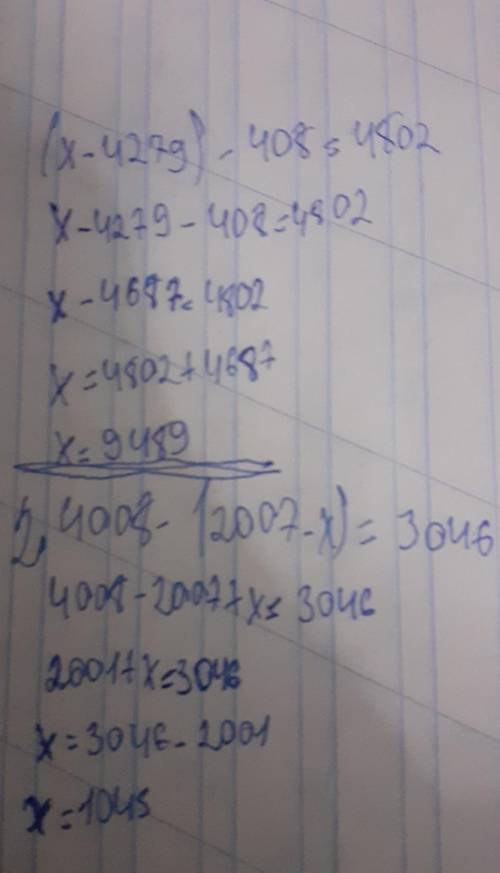 (x-4279)-408=4802
x-4279-408=4802
x-4687=4802
x=4802+4687
x=9489
2, 4008-(2007-x)=3046
4008-2007+x=3046
2001+x=3046
x=3046-2001
x=1045